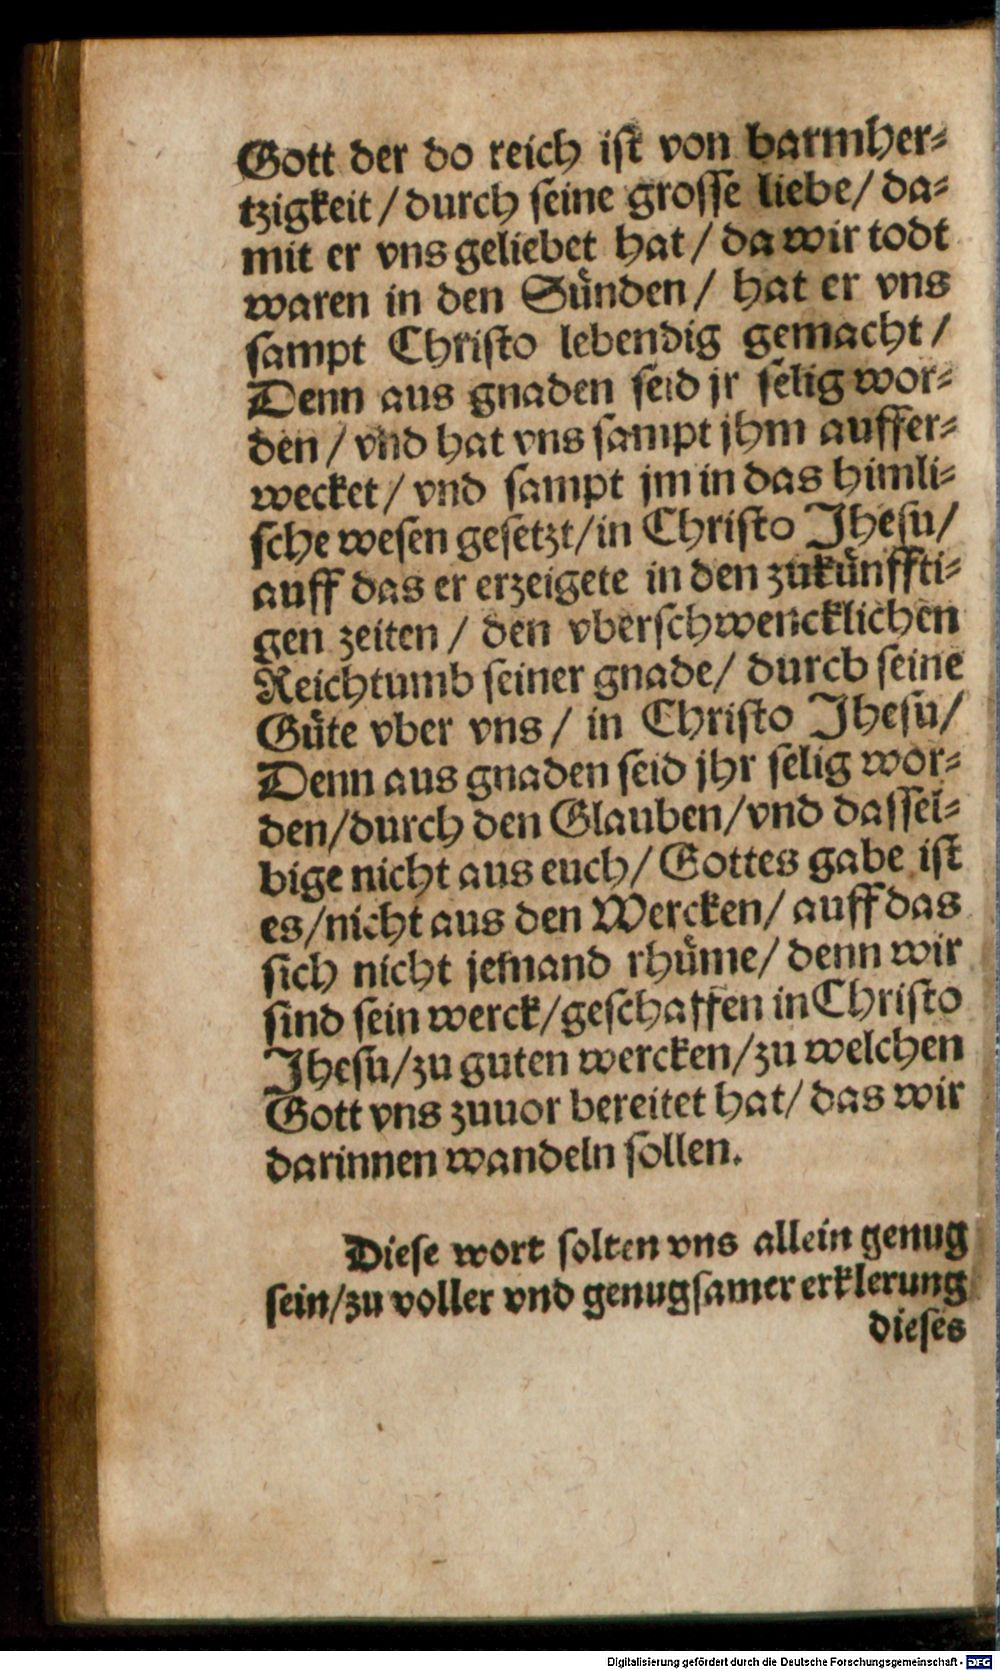 Gott der do reich ist von barmher⸗
tzigkeit / durch seine grosse liebe / da⸗
mit er vns geliebet hat / da wir todt
waren in den Sünden / hat er vns
sampt Christo lebendig gemacht /
Denn aus gnaden seid jr selig wor⸗
den / vnd hat vns sampt jhm auffer⸗
wecket / vnd sampt jm in das himli⸗
sche wesen gesetzt / in Christo Jhesu /
auff das er erzeigete in den zukünffti⸗
gen zeiten / den vberschwencklichen
Reichtumb seiner gnade / durch seine
Güte vber vns / in Christo Jhesu /
Denn aus gnaden seid jhr selig wor⸗
den / durch den Glauben / vnd dassel⸗
bige nicht aus euch / Gottes gabe ist
es / nicht aus den Wercken / auff das
sich nicht jemand rhüme / denn wir
sind sein werck / geschaffen in Christo
Jhesu / zu guten wercken / zu welchen
Gott vns zuuor bereitet hat / das wir
darinnen wandeln sollen.
Diese wort solten vns allein genug
sein / zu voller vnd genugsamer erklerung
dieses
Digitalisierung gefördert durch die Deutsche Forschungsgemeinschaft - DFG